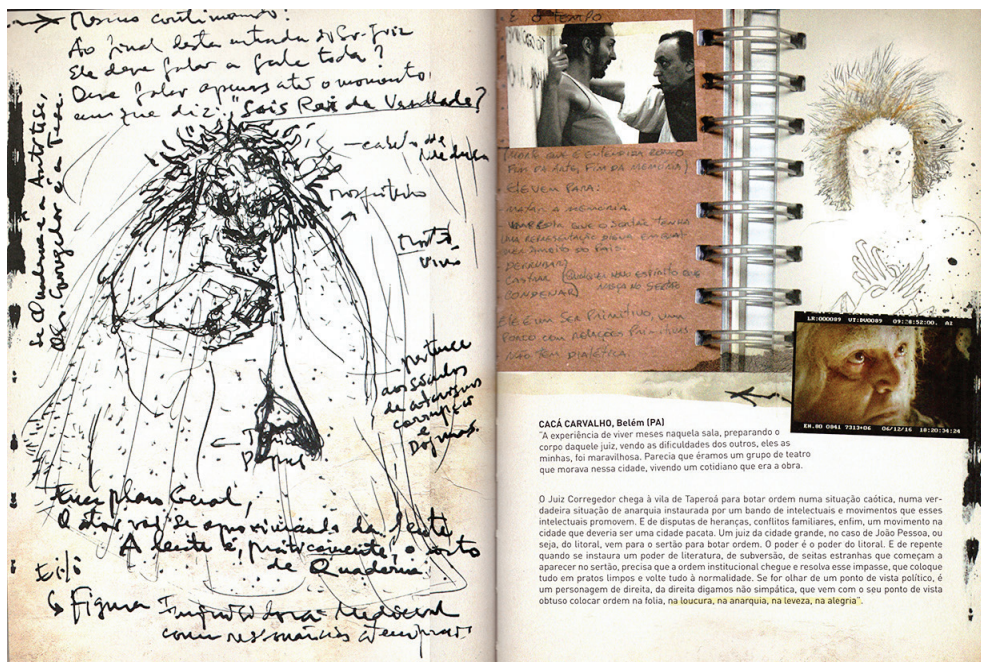 continuando:
Ao final desta entrada do Sr. Juiz
Ele deve falar a fala toda?
Deve falar apenas até o momento
em que diz: "Sois Rei de Verdade?
Se Quaderna é a Antitese,
O Sr. Corregedor é a Tese.
cabelo de
Medusa
mosquiteiro
pertence
aos séculos
de
corrupção
e
Dogmas.
plano Geral,
O ator vai se aproximando da lente
A lente é, praticamente, o rosto
de Quaderna
Figura Inquisidora Medieval
com ressonâncias
E O TEMPO
FIM DA MEMÓRIA)
ELE VEM PARA:
MATAR A MEMÓRIA
QUE O SERTÃO TENHA
UMA REPRESENTAÇÃO DIGNA
DERRUBAR
CASTRAR (QUALQUER NOVO ESPÍRITO QUE
CONDENAR) NASÇA NO SERTÃO
ELE É UM SER PRIMITIVO, UMA
COM RELAÇÕES PRIMITIVAS
NÃO TEM DIALÉTICA
LR:000089 VI:DV0089 09:28:52:00. A1
EH.80 0841 7313+06 06/12/16 18:20:34:24
CACÁ CARVALHO, Belém (PA)
"A experiência de viver meses naquela sala, preparando o
corpo daquele juiz, vendo as dificuldades dos outros, eles as
minhas, foi maravilhosa. Parecia que éramos um grupo de teatro
que morava nessa cidade, vivendo um cotidiano que era a obra.
O Juiz Corregedor chega à vila de Taperoá para botar ordem numa situação caótica, numa ver-
dadeira situação de anarquia instaurada por um bando de intelectuais e movimentos que esses
intelectuais promovem. E de disputas de heranças, conflitos familiares, enfim, um movimento na
cidade que deveria ser uma cidade pacata. Um juiz da cidade grande, no caso de João Pessoa, ou
seja, do litoral, vem para o sertão para botar ordem. O poder é o poder do litoral. E de repente
quando se instaura um poder de literatura, de subversão, de seitas estranhas que começam a
aparecer no sertão, precisa que a ordem institucional chegue e resolva esse impasse, que coloque
tudo em pratos limpos e volte tudo à normalidade. Se for olhar de um ponto de vista político, é
um personagem de direita, da direita digamos não simpática, que vem com o seu ponto de vista
obtuso colocar ordem na folia, na loucura, na anarquia, na leveza, na alegria".